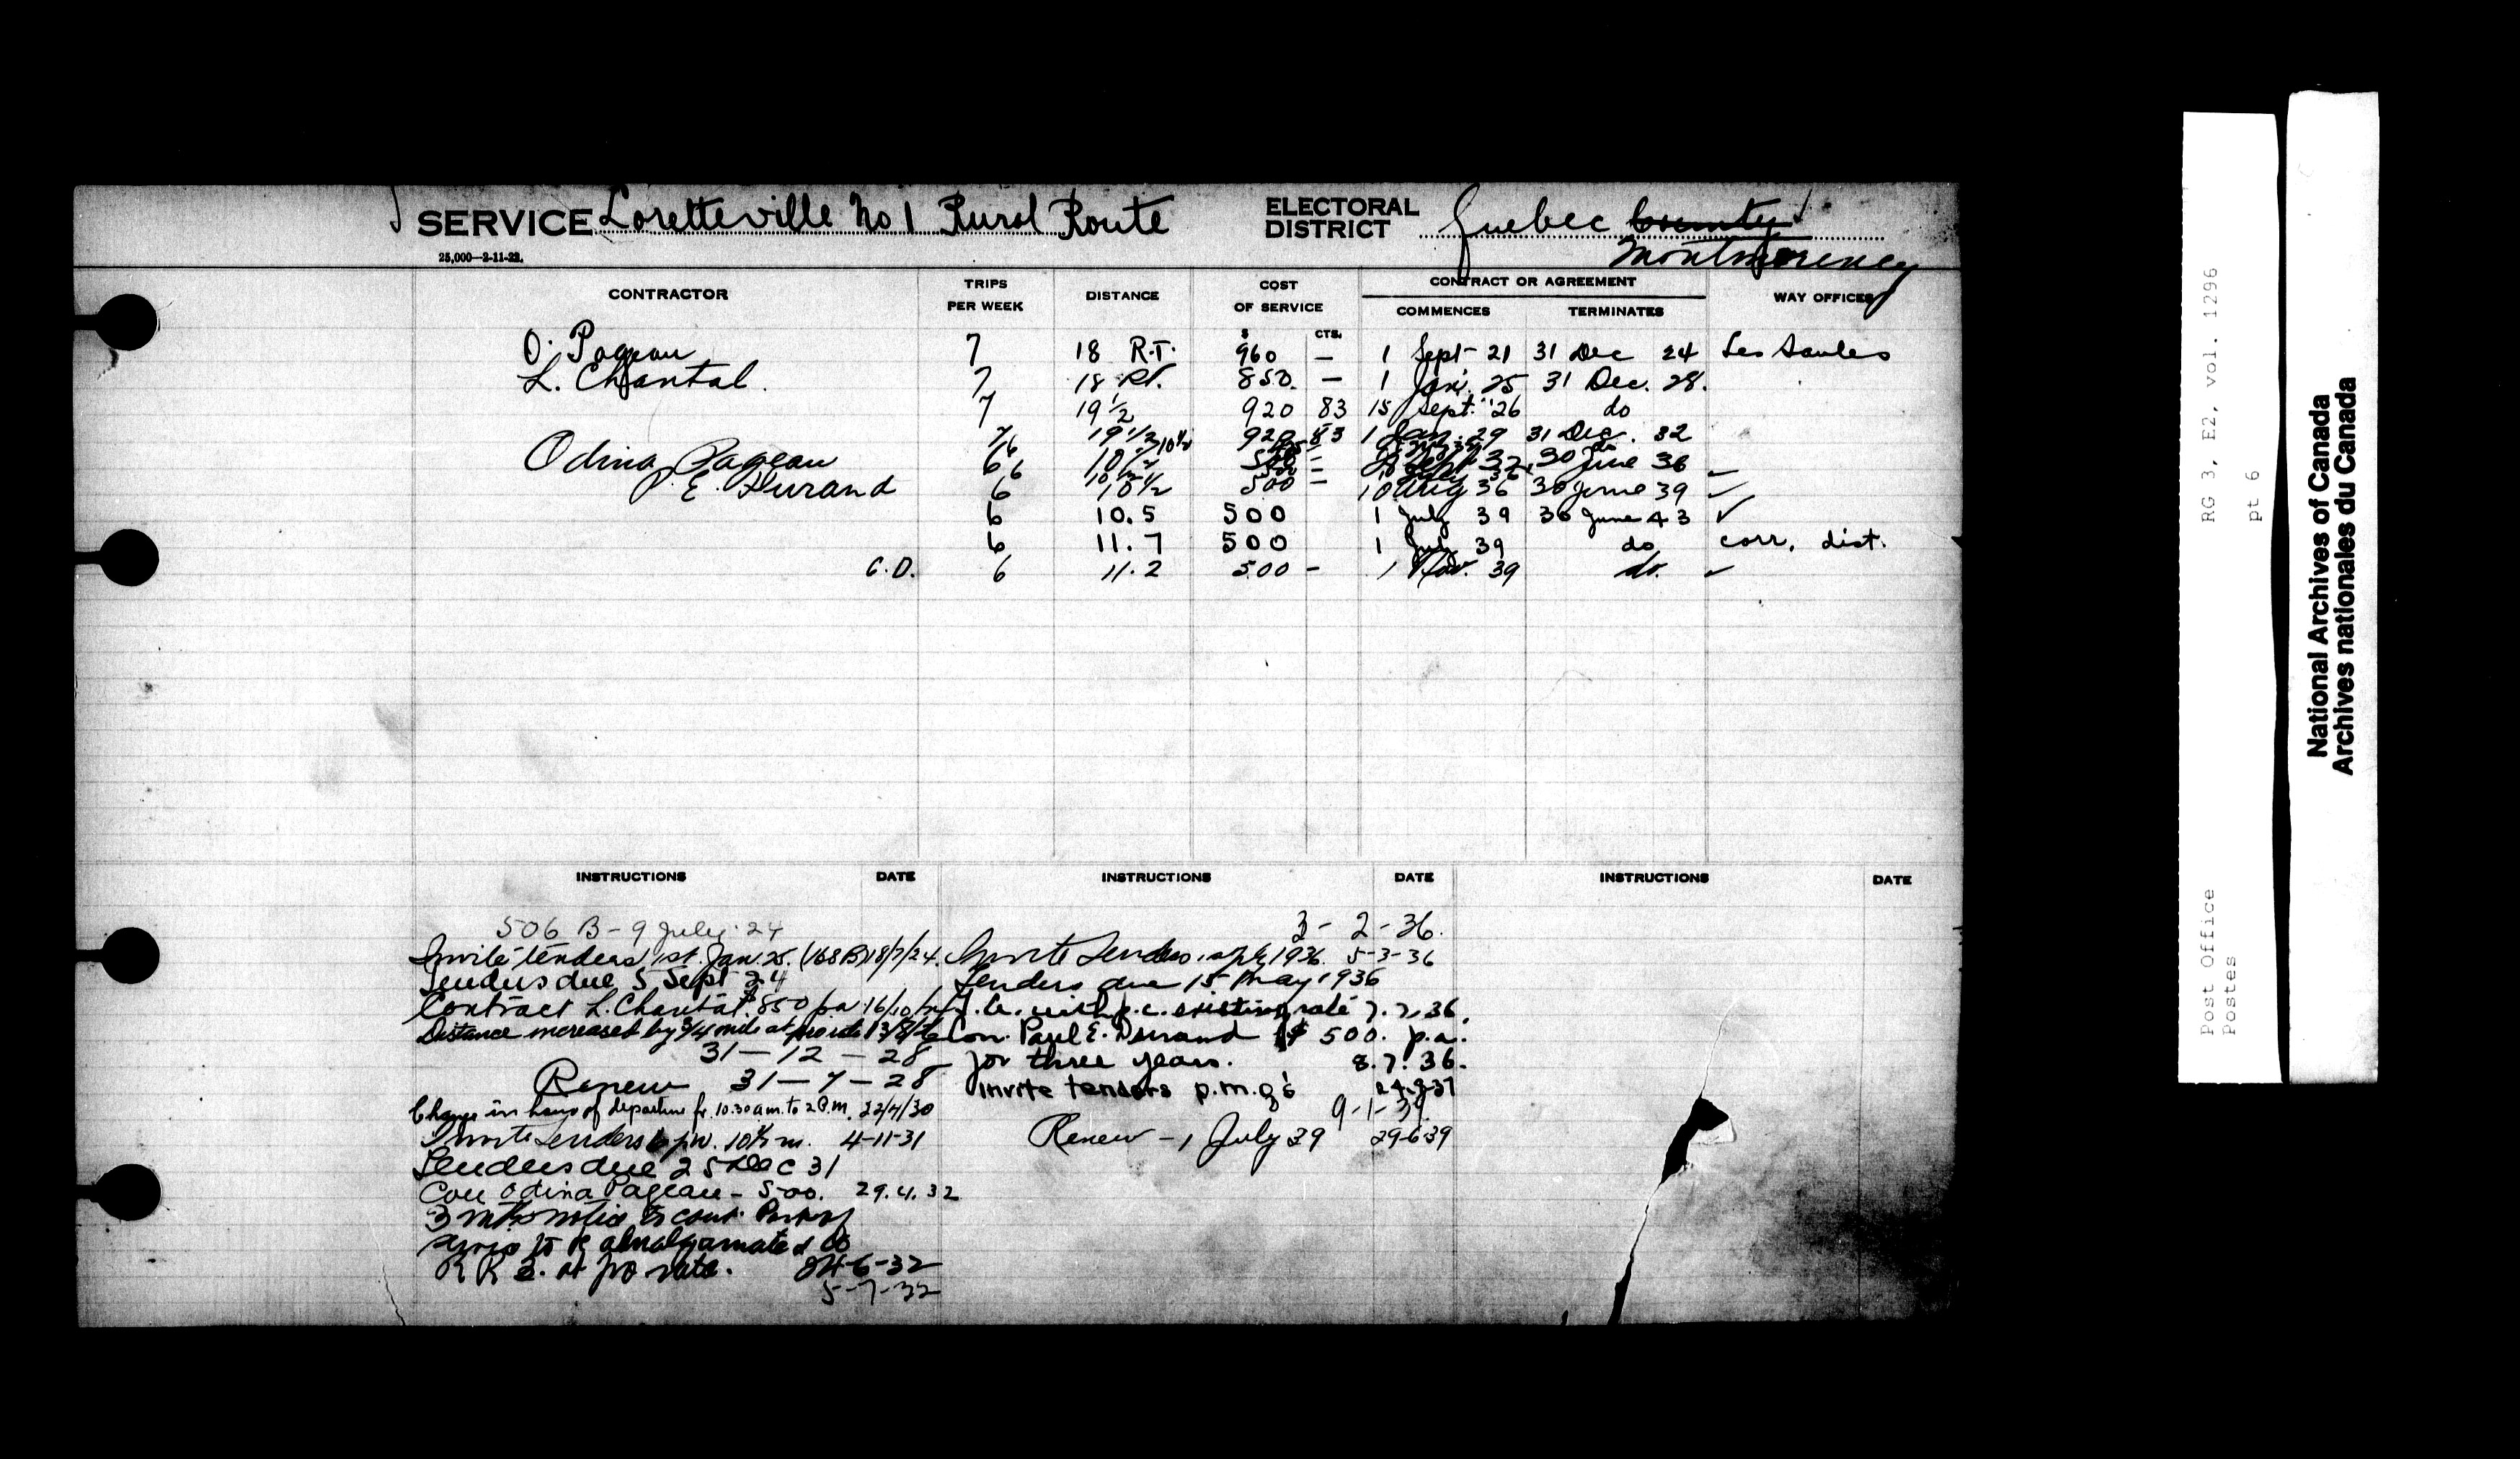 SERVICE Loretteville No 1 Rural Route ELECTORAL DISTRICT Quebec County
Montmorency
25,000—2-11-22.
CONTRACTOR TRIPS PER WEEK DISTANCE COST OF SERVICE CONTRACT OR AGREEMENT WAY OFFICES
COMMENCES TERMINATES
$ CTS.
O. Pageau 7 18 R.T. 960 — 1 Sept 21 31 Dec 24 Les Saules
L. Chantal. 7 18 Rt. 850. — 1 Jan. 25 31 Dec. 28.
7 19 1/2 920 83 15 Sept. '26 do
7/6 19 1/2 10 1/2 920 83 1 Jan. 29 31 Dec. 32
Odina Pageau 6 10 1/2 500 — Sept 32 30 June 36
P. E. Durand 6 10 1/2 500 — 10 Aug 36 30 June 39 ✓
6 10.5 500 1 July 39 30 June 43 ✓
6 11.7 500 1 July 39 do corr. dist.
C.D. 6 11.2 500 — 1 Nov. 39 do. ✓
INSTRUCTIONS DATE INSTRUCTIONS DATE INSTRUCTIONS DATE
506 B - 9 July 24
Invite tenders 1st. Jan. 25. (168B) 18/7/24.
Tenders due 5 Sept 24
Contract L. Chantal $850 pa 16/10/24
Distance increased by 3/4 mile at pro rate 13/8/26
31 — 12 — 28
Renew 31 — 7 — 28
Change in hours of departure fr. 10.30 a.m. to 2 P.M. 22/4/30
Invite Tenders 6 pw. 10 1/2 m. 4-11-31
Tenders due 25 Dec 31
Con Odina Pageau - 500. 29.4.32
3 mths notice to cont. Part of
service to be amalgamated to
R R 2. at pro rate. 24-6-32
5-7-32
3 - 2 - 36.
Invite Tenders 1 July 1936. 5-3-36
Tenders due 15 May 1936
T.A. with p.c. existing rate 7.7.36.
Con. Paul E. Durand @ $500. p.a.
for three years. 8.7.36.
invite tenders p.m.g's
9-1-39.
Renew - 1 July 39 29-6-39
RG 3, E2, vol. 1296
pt 6
Post Office
Postes
National Archives of Canada
Archives nationales du Canada